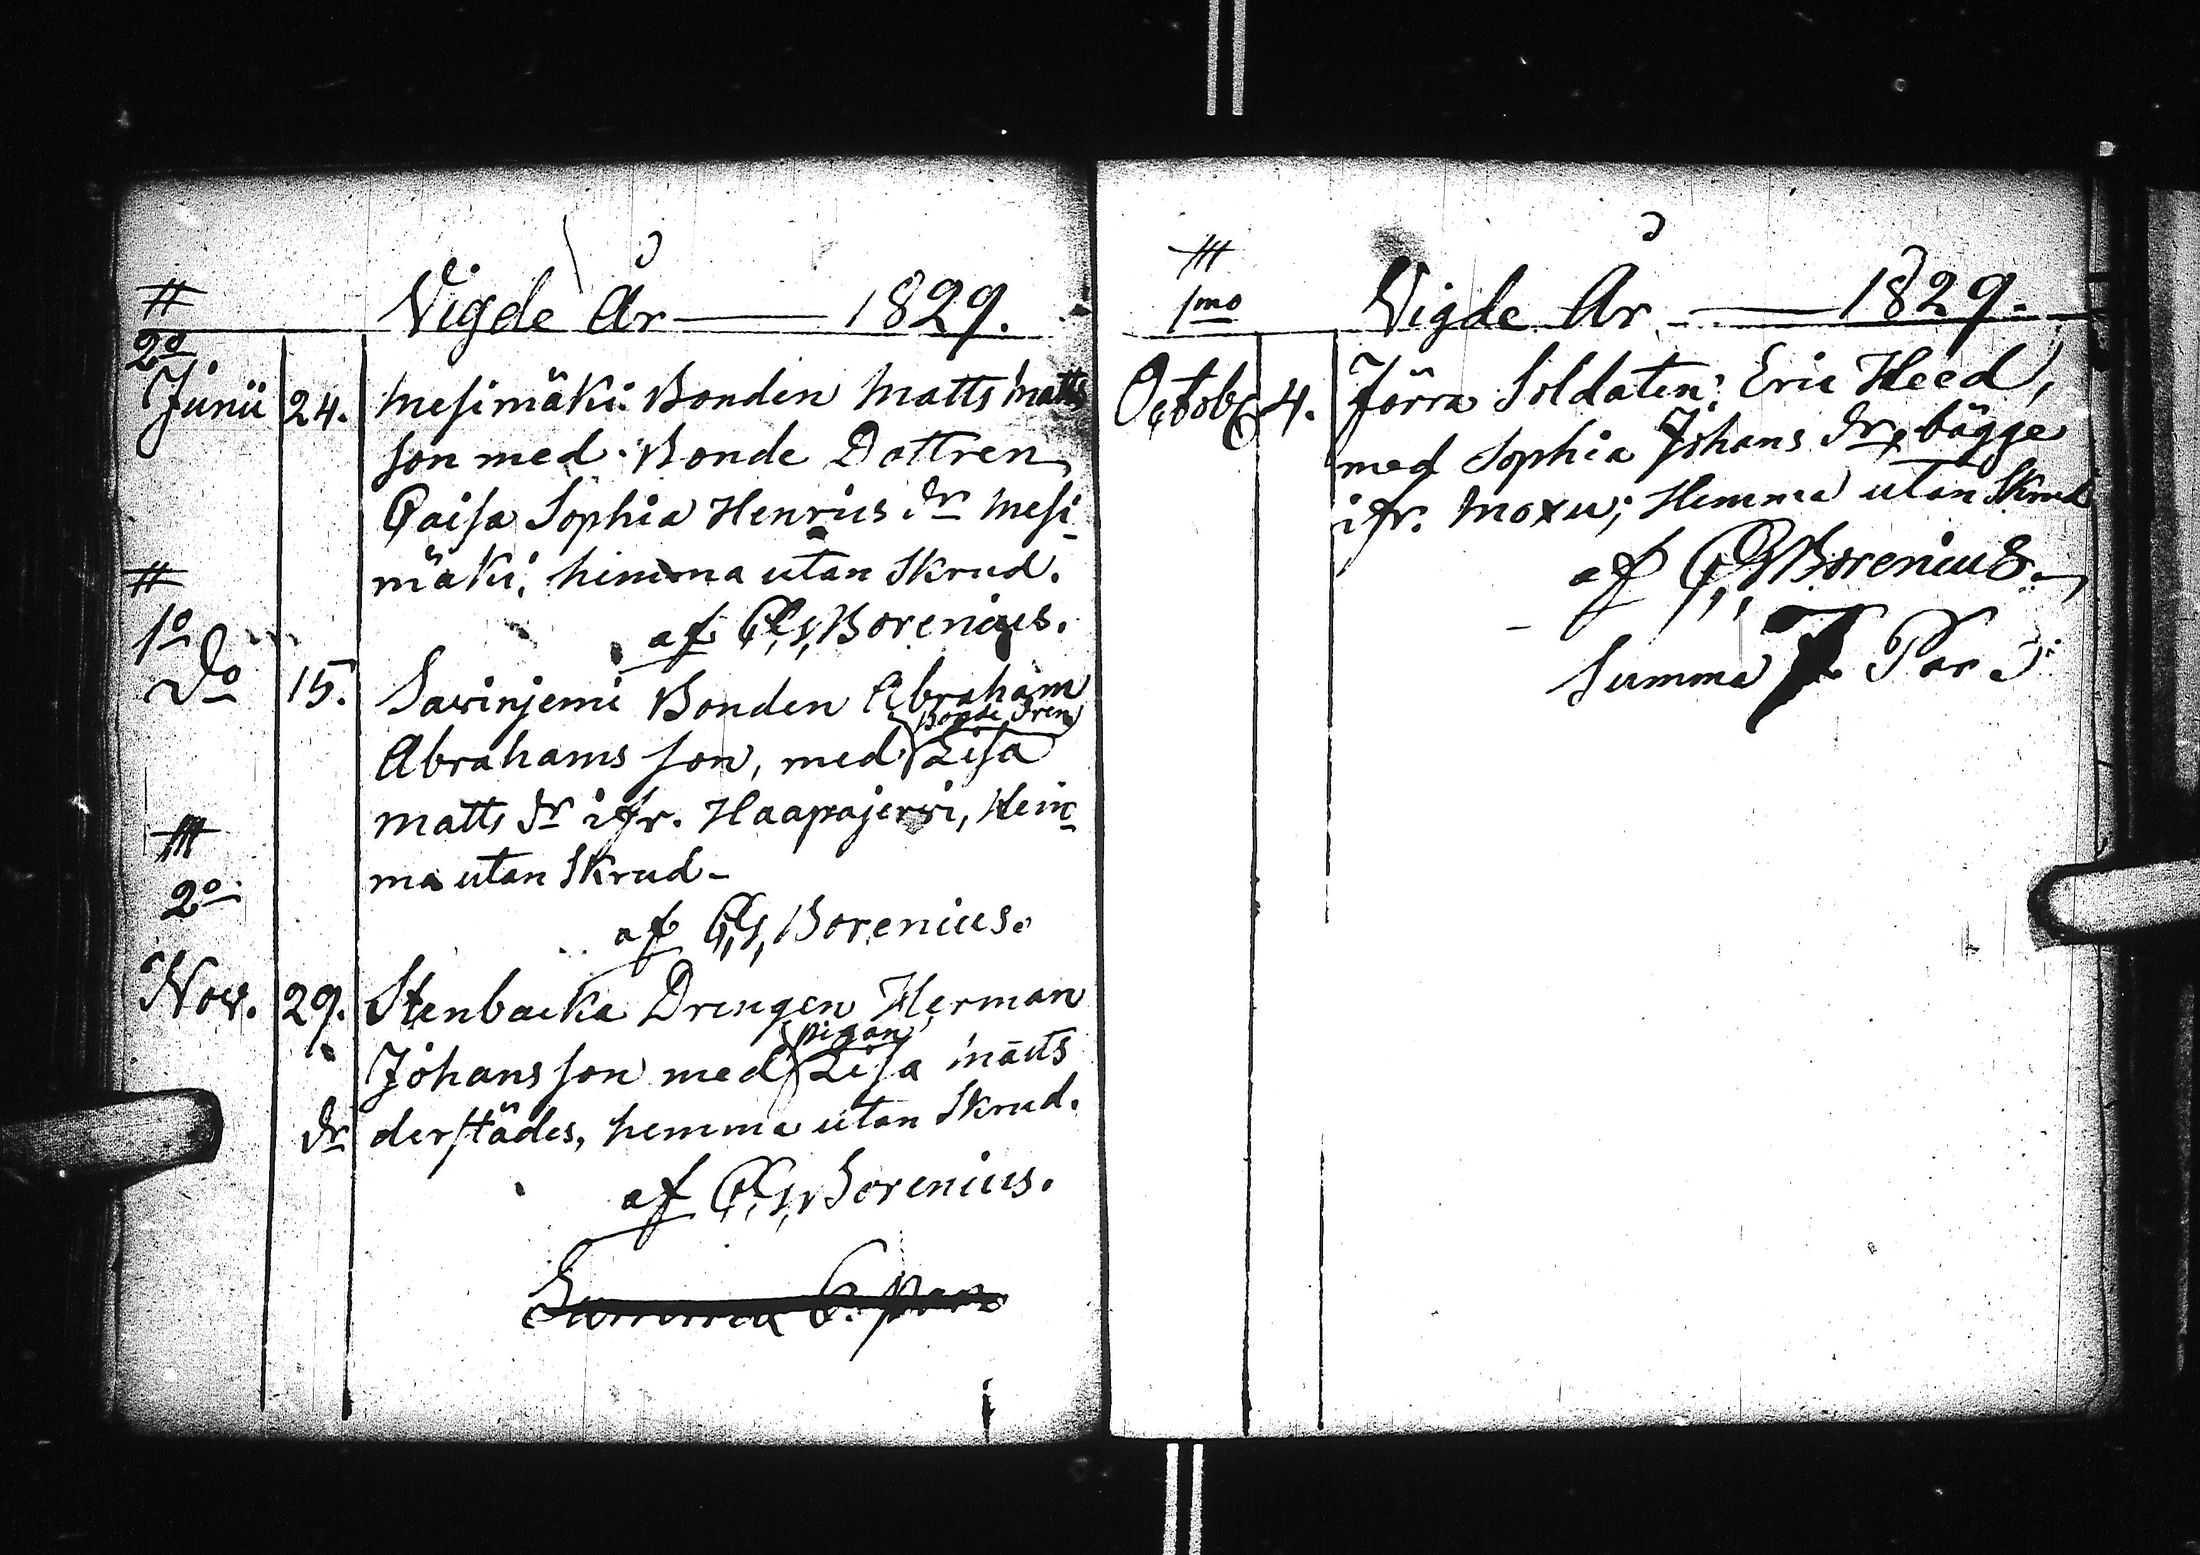 Vigde År — 1829.
#
2o
Junii 24. Mesimäki Bonden Matts Matts
son med Bonde Dottren
Caisa Sophia Henrics dr Mesi-
mäki, himma utan Skrud.
af C. G. Borenius.
#
1o
Do 15. Sawinjemi Bonden Abraham
Bonde dren
Abrahams son, med Lisa
Matts dr ifr. Haapajerwi, Hem-
ma utan Skrud-
af C. G. Borenius.
2o
Nov. 29. Stenbacka Drengen Herman
pigan
Johans son med Lisa Matts
dr derstädes, hemma utan Skrud.
af C. G. Borenius.
Summa 6. par
1mo
Vigde År — 1829.
Octob 4. Förra Soldaten Eric Heed,
med Sophia Johans dr, bägge
ifr. Moxu; Hemma utan Skrud
af C. G. Borenius.
Summa 7 Par